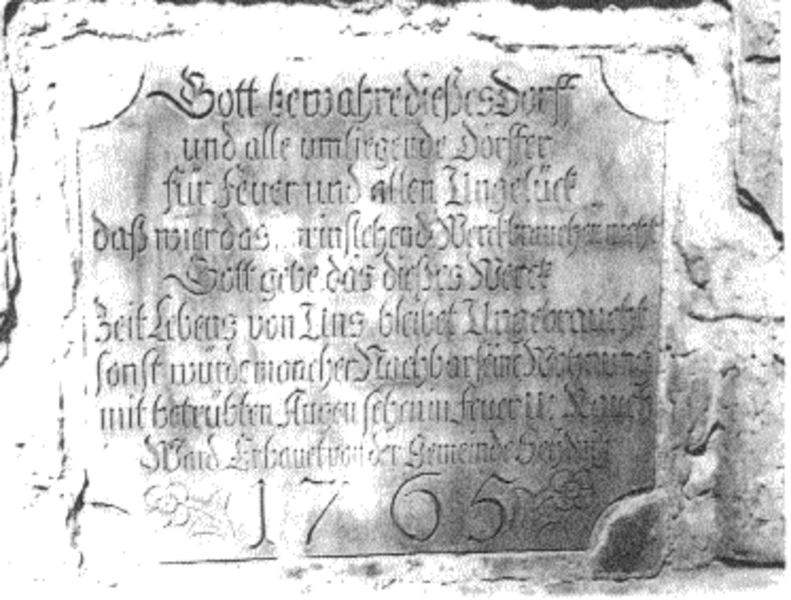 Gott bewahre dießes Dorff
und alle umliegende Dörffer
für Feuer und allen Ungelück
daß wier das rinstehend Werck brauchen nicht
Gott gebe das dießes Werck
Zeit Lebens von Uns bleibet Ungebraucht
sonst würde mancher Nachbar seine Wohnung
mit betrübten Augen sehen in Feuer u: Rauch
Ward Erbauet von der Gemeinde
1765